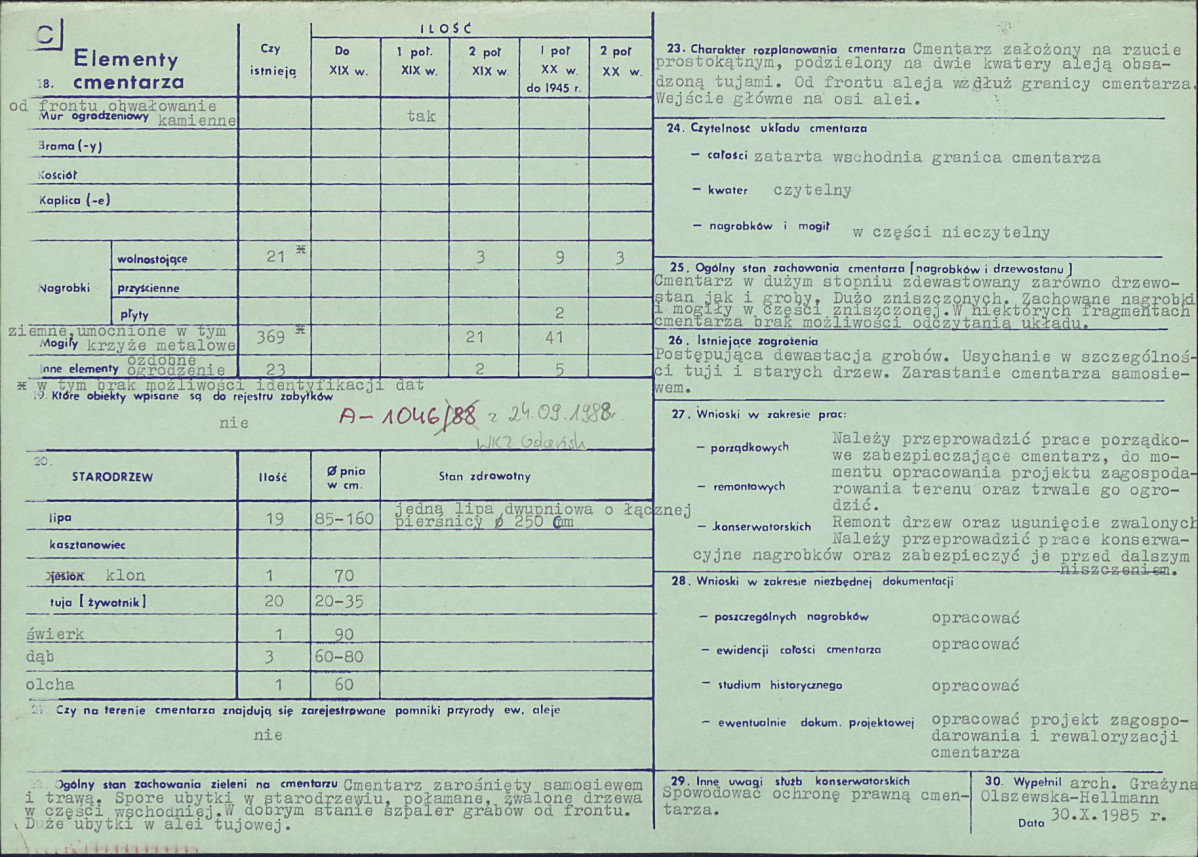 C
Elementy
18. cmentarza
Czy
istnieją
ILOŚĆ
Do
XIX w.
1 poł.
XIX w.
2 poł
XIX w.
I poł
XX w.
do 1945 r.
2 poł
XX w.
od frontu obwałowanie
Mur ogrodzeniowy kamienne tak
Brama (-y)
Kościół
Kaplica (-e)
Nagrobki
wolnostojące 21 ж 3 9 3
przyścienne
płyty 2
ziemne, umocnione w tym
Mogiły krzyże metalowe 369 ж 21 41
ozdobne
Inne elementy ogrodzenie 23 2 5
ж w tym brak możliwości identyfikacji dat
19. Które obiekty wpisane są do rejestru zabytków
nie A-1046/88 z 24.09.1988r.
WKZ Gdańsk
20.
STARODRZEW Ilość Ø pnia
w cm. Stan zdrowotny
lipa 19 85-160 jedna lipa dwupniowa o łącznej
pierśnicy ø 250 cm
kasztanowiec
jesion klon 1 70
tuja [żywotnik] 20 20-35
świerk 1 90
dąb 3 60-80
olcha 1 60
21. Czy na terenie cmentarza znajdują się zarejestrowane pomniki przyrody ew. aleje
nie
Ogólny stan zachowania zieleni na cmentarzu Cmentarz zarośnięty samosiewem
i trawą. Spore ubytki w starodrzewiu, połamane, zwalone drzewa
w części wschodniej.W dobrym stanie szpaler grabów od frontu.
Duże ubytki w alei tujowej.
23. Charakter rozplanowania cmentarza Cmentarz założony na rzucie
prostokątnym, podzielony na dwie kwatery aleją obsa-
dzoną tujami. Od frontu aleja wzdłuż granicy cmentarza.
Wejście główne na osi alei.
24. Czytelność układu cmentarza
- całości zatarta wschodnia granica cmentarza
- kwater czytelny
- nagrobków i mogił w części nieczytelny
25. Ogólny stan zachowania cmentarza [nagrobków i drzewostanu]
Cmentarz w dużym stopniu zdewastowany zarówno drzewo-
stan jak i groby. Dużo zniszczonych. Zachowane nagrobki
i mogiły w części zniszczonej.W niektórych fragmentach
cmentarza brak możliwości odczytania układu.
26. Istniejące zagrożenia
Postępująca dewastacja grobów. Usychanie w szczególnoś-
ci tuji i starych drzew. Zarastanie cmentarza samosie-
wem.
27. Wnioski w zakresie prac:
- porządkowych Należy przeprowadzić prace porządko-
we zabezpieczające cmentarz, do mo-
mentu opracowania projektu zagospoda-
- remontowych rowania terenu oraz trwale go ogro-
dzić.
- konserwatorskich Remont drzew oraz usunięcie zwalonych
Należy przeprowadzić prace konserwa-
cyjne nagrobków oraz zabezpieczyć je przed dalszym
niszczeniem.
28. Wnioski w zakresie niezbędnej dokumentacji
- poszczególnych nagrobków opracować
- ewidencji całości cmentarza opracować
- studium historycznego opracować
- ewentualnie dokum. projektowej opracować projekt zagospo-
darowania i rewaloryzacji
cmentarza
29. Inne uwagi służb konserwatorskich
Spowodować ochronę prawną cmen-
tarza.
30. Wypełnił arch. Grażyna
Olszewska-Hellmann
Data 30.X.1985 r.